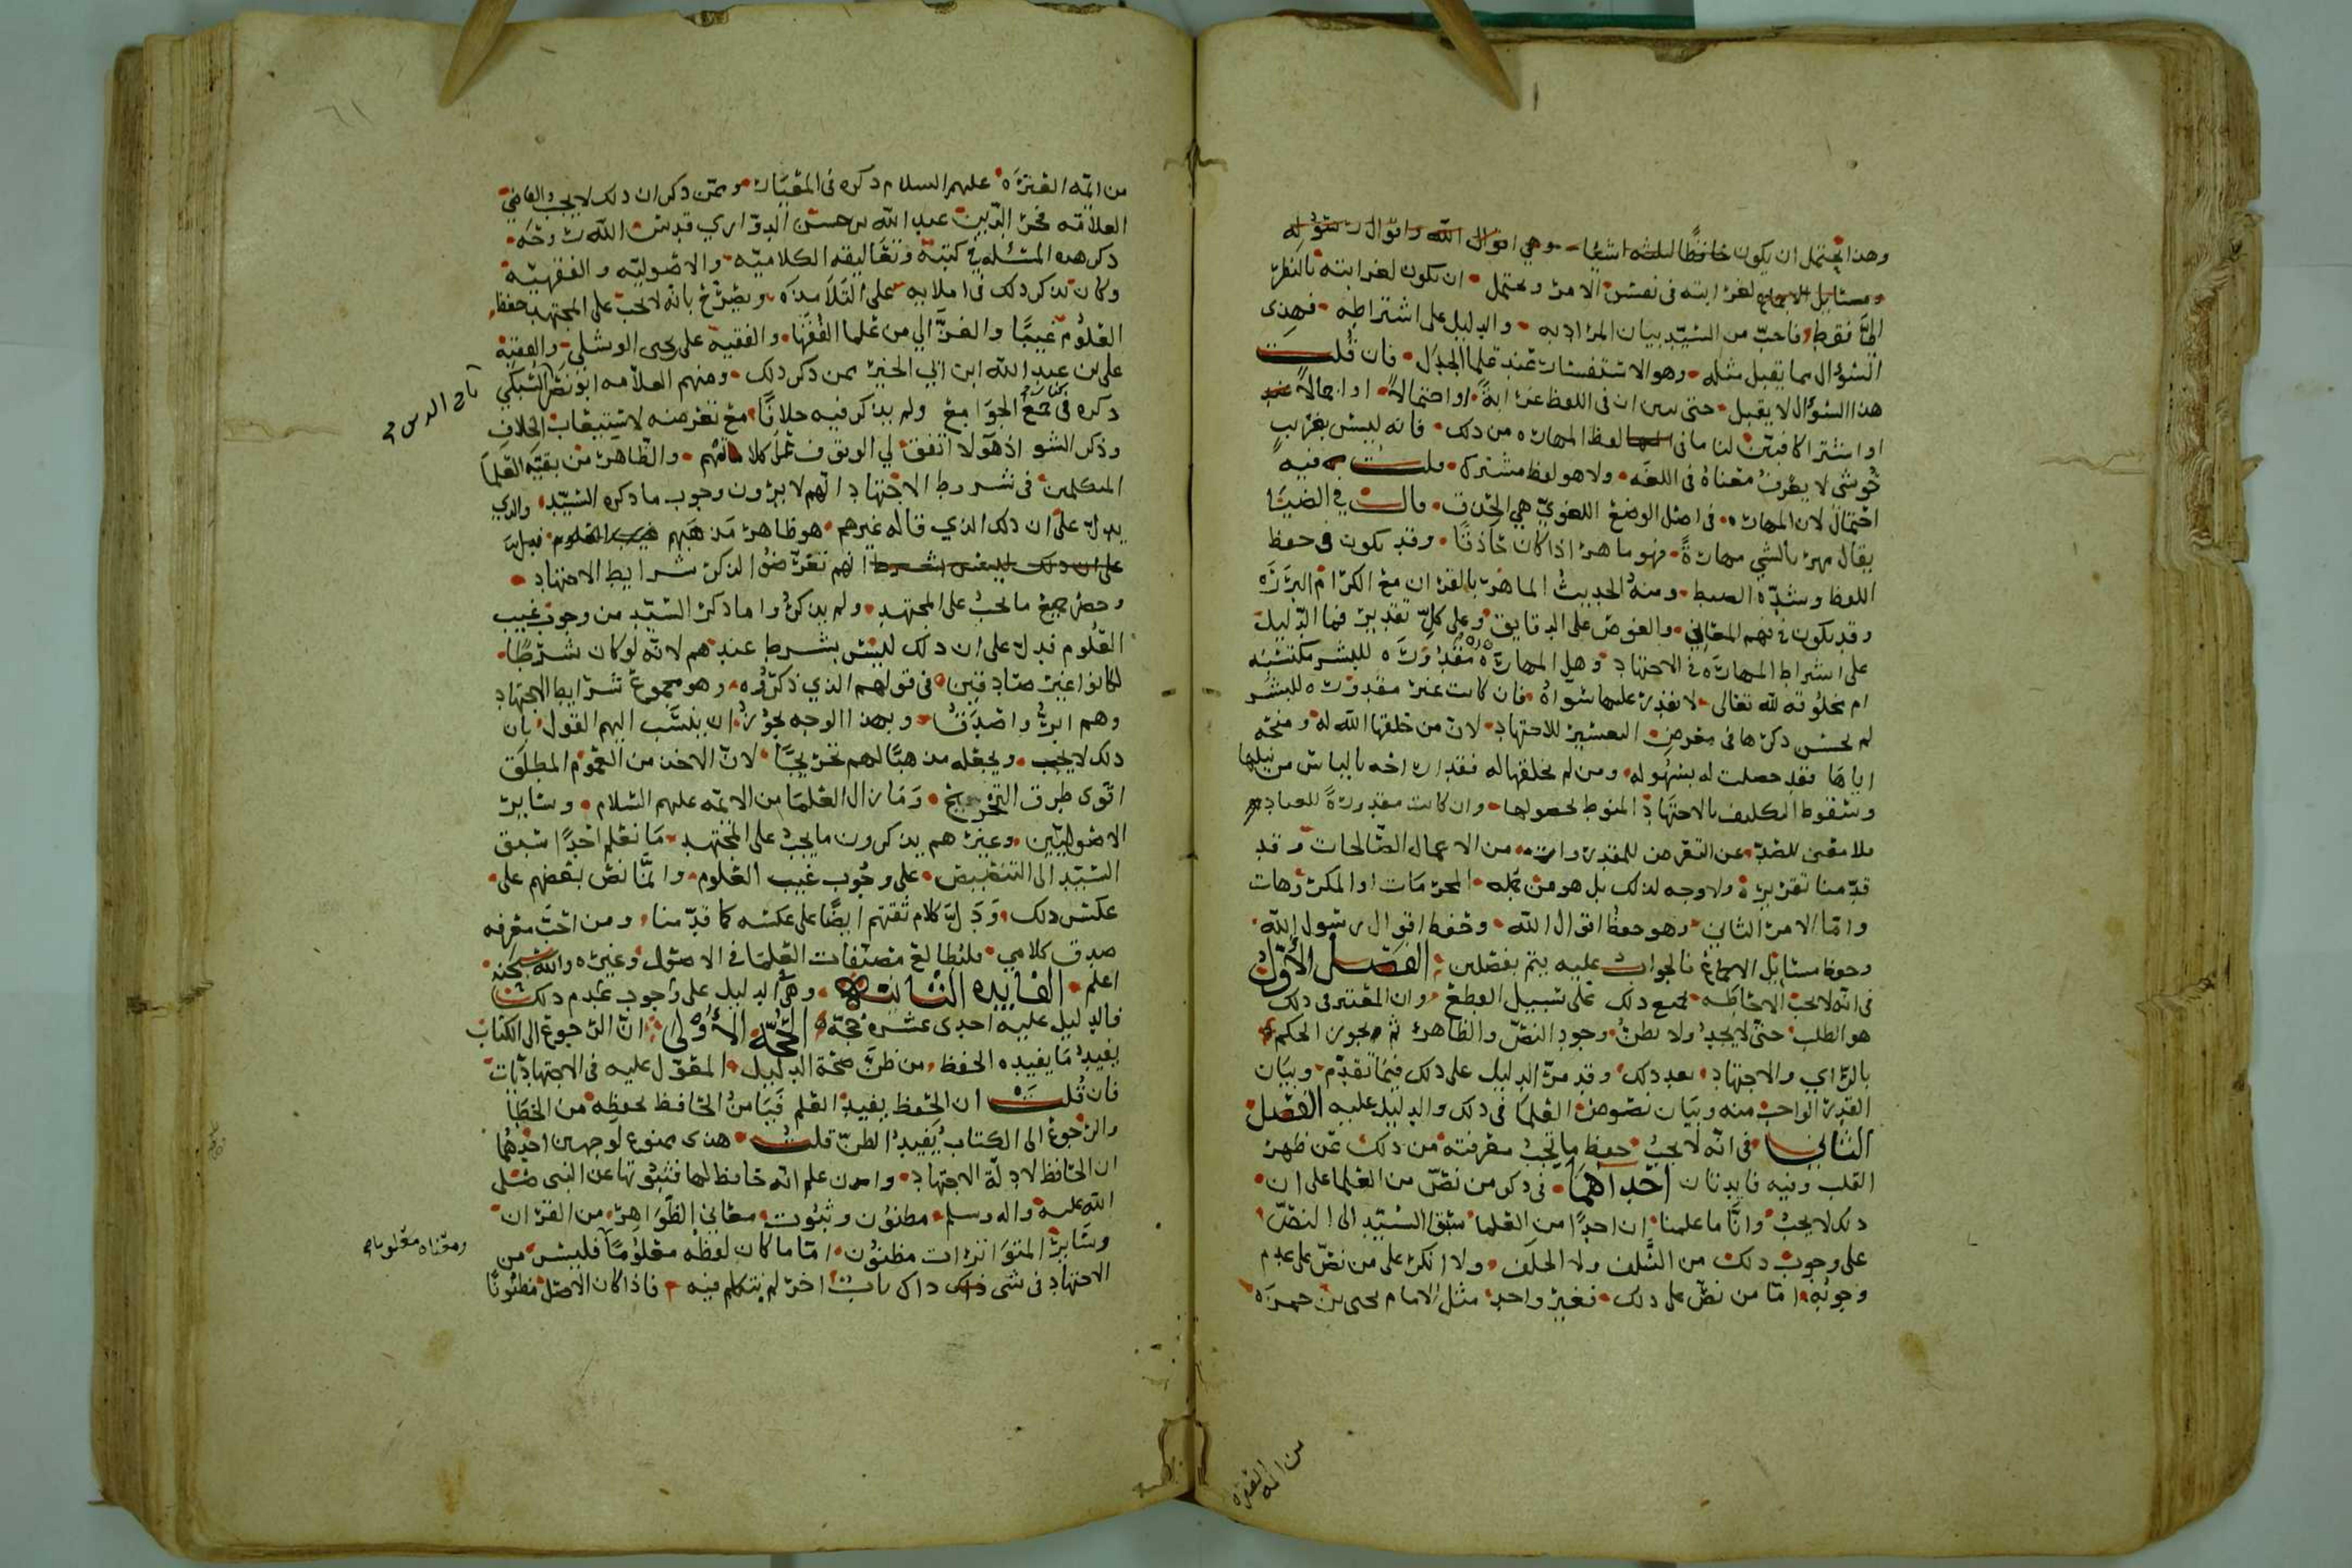 وهذا يحتمل ان يكون حافظًا لثلثه اشيا وهي اقوال الله واقوال رسوله
ومسايل الاجماع لغرابته في نفس الامر ويحتمل ان يكون لغرابته بالنظر
الينا فقط فاحب من السيد بيان المراد به والدليل على اشتراطه فهذي
السؤال مما يقبل مثله وهو الاستفسار عند علما الجدل فان قلت
هذا السؤال لا يقبل حتى يبين ان في اللفظ غرابة او احتمالا او اجمالا
او اشتراكا فبين لنا ما في لفظ المهاره من ذلك فانه ليس بغريب
حوشي لا يعرف معناه في اللغه ولا هو لفظ مشترك قلت فيه
احتمال لان المهاره في اصل الوضع اللغوي هي الحذق قال في الضيا
يقال مهر بالشي مهارة فهو ماهر اذا كان حاذقا وقد يكون في حفظ
اللفظ وشدة الضبط ومنه الحديث الماهر بالقران مع الكرام البررة
وقد يكون في فهم المعاني والغوص على الدقايق وعلى كل تقدير فما الدليل
على اشتراط المهاره في الاجتهاد وهل المهارة مقدورة للبشر مكتسبه
ام مخلوقه لله تعالى لا يقدر عليها سواه فان كانت غير مقدوره للبشر
لم يحسن ذكرها في معرض التعسير للاجتهاد لان من خلقها الله له ومنحه
اياها فقد حصلت له بسهوله ومن لم يخلقها له فقد اراحه بالياس من نيلها
وسقوط التكليف بالاجتهاد المنوط بحصولها وان كانت مقدورة للعباد
فلا معنى للصد عن التعرض للمقدورات من الاعمال الصالحات وقد
قدمنا تقريره ولا وجه لذلك بل هو من جمله المحرمات او المكروهات
واما الامر الثاني وهو حفظ اقوال الله وحفظ اقوال رسول الله
وحفظ مسايل الاجماع فالجواب عليه يتم بفصلين الفصل الاول
في انه لا يجب الاحاطه بجميع ذلك على سبيل القطع وان المعتبر في ذلك
هو الطلب حتى لا يجد ولا يظن وجود النص والظاهر ثم يجوز الحكم
بالراي والاجتهاد بعد ذلك وقد مر الدليل على ذلك فيما تقدم وبيان
القدر الواجب منه وبيان نصوص العلما في ذلك والدليل عليه الفصل
الثاني في انه لا يجب حفظ ما تجب معرفته من ذلك عن ظهر
القلب وفيه فايدتان احداهما في ذكر من نص من العلما على ان
ذلك لا يجب وانا ما علمنا ان احدا من العلما سبق السيد الى النص
على وجوب ذلك من السلف ولا الخلف ولا انكر على من نص على عدم
وجوبه اما من نص على ذلك فغير واحد مثل الامام يحيى بن حمزه
من ائمه العتره
من ائمه العترة عليهم السلام ذكره في المعيار وممن ذكر ان ذلك لا يجب القاضي
العلامه فخر الدين عبد الله بن حسن الدواري قدس الله روحه
ذكر هذه المسئله في كتبه وتعاليقه الكلاميه والاصوليه والفقهيه
وكان يذكر ذلك في املايه على التلامذه ويصرح بانه لا يجب على المجتهد حفظ
العلوم غيبا والغزالي من علما الفقها والفقيه على بن يحيى الوشلي والفقيه
على بن عبد الله ابن ابي الخير ممن ذكر ذلك ومنهم العلامه ابو نصر السبكي
ذكره في جمع الجوامع ولم يذكر فيه خلافا مع تعرضه لاستيعاب الخلاف
وذكر الشو اذ هولا اتفق لي الوقوف على كلامهم والظاهر من بقيه العلما
المتكلمين في شروط الاجتهاد انهم لا يرون وجوب ما ذكره السيد والذي
يدل على ان ذلك الذي قاله غيرهم هو ظاهر مذهبهم
انهم تعرضوا لذكر شرايط الاجتهاد
وحصر جميع ما يجب على المجتهد ولم يذكروا ما ذكر السيد من وجوب غيب
العلوم فدل على ان ذلك ليس بشرط عندهم لانه لو كان شرطا
لكانوا غير صادقين في قولهم الذي ذكروه وهو مجموع شرايط الاجتهاد
وهم ابر واصدق وبهذا الوجه يجوز ان ينسب اليهم القول بان
ذلك لا يجب ويجعله مذهبا لهم تخريجا لان الاخذ من العموم المطلق
اقوى طرق التخريج وما زال العلما من الايمه عليهم السلام وساير
الاصوليين وغيرهم يذكرون ما يجب على المجتهد ما نعلم احدا سبق
السيد الى التنصيص على وجوب غيب العلوم وانما نص بعضهم على
عكس ذلك ودل كلام بقيتهم ايضا على عكسه كما قدمنا ومن احب معرفه
صدق كلامي فليطالع مصنفات العلما في الاصول وغيره والله سبحنه
اعلم الفايده الثانيه وهي الدليل على وجوب عدم ذلك
فالدليل عليه احدى عشره حجة الحجة الاولى ان الرجوع الى الكتاب
يفيد ما يفيده الحفظ من ظن صحة الدليل المعول عليه في الاجتهاديات
فان قلت ان الحفظ يفيد العلم فيامن الحافظ لحفظه من الخطا
والرجوع الى الكتاب يفيد الظن قلت هذى ممنوع لوجهين احدهما
ان الحافظ لادلة الاجتهاد وان علم انه حافظ لها فثبوتها عن النبى صلى
الله عليه واله وسلم مظنون وثبوت معاني الظواهر من القران
وساير المتواترات مظنون اما ما كان لفظه معلوما فليس من
الاجتهاد في شى ذاك باب اخر لم يتكلم فيه فاذا كان الاصل مظنونا
تاج الدين
ومعناه معلوما